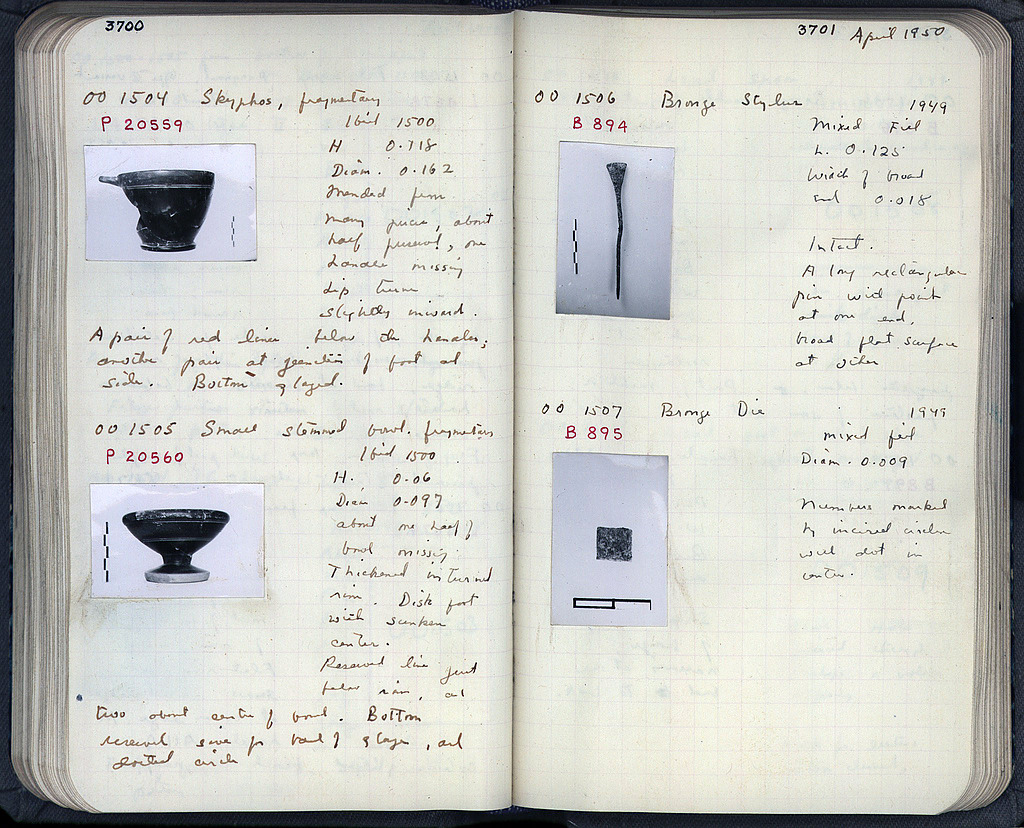 3700
OO 1504 Skyphos, fragmentary
P 20559
Ibid 1500
H 0.118
Diam. 0.162
Mended from
many pieces, about
half preserved, one
handle missing
Lip turns
slightly inward.
A pair of red lines below the handles;
another pair at junction of foot and
side. Bottom glazed.
OO 1505 Small stemmed bowl. fragmentary
P 20560
Ibid 1500
H. 0.06
Diam 0.097
about one half of
bowl missing.
Thickened in turned
rim. Disk foot
with sunken
center.
Reserved line just
below rim, and
two about center of bowl. Bottom
reserved save for band of glaze, and
dotted circle
3701 April 1950
OO 1506 Bronze Stylus 1949
B 894
Mixed Fill
L. 0.125
Width of broad
end 0.018
Intact.
A long rectangular
pin with point
at one end,
broad flat surface
at other
OO 1507 Bronze Die 1949
B 895
mixed fill
Diam. 0.009
Numbers marked
by incised circles
with dot in
center.